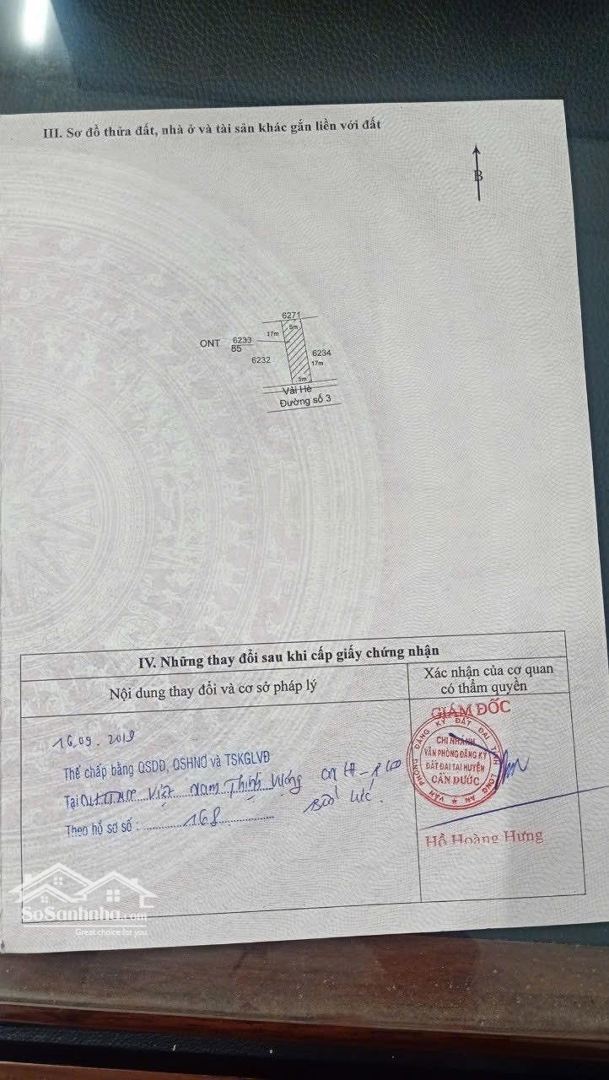 III. Sơ đồ thửa đất, nhà ở và tài sản khác gắn liền với đất
B
6271
5m
17m
ONT 6233
85
6232
6234
17m
5m
Vỉa Hè
Đường số 3
IV. Những thay đổi sau khi cấp giấy chứng nhận
Nội dung thay đổi và cơ sở pháp lý
Xác nhận của cơ quan
có thẩm quyền
16.09.2019
Thế chấp bằng QSDĐ, QSHNƠ và TSKGLVĐ
Tại Việt Nam Thịnh Vượng CN
Bến Lức
Theo hồ sơ số : 168
GIÁM ĐỐC
VĂN PHÒNG ĐĂNG KÝ ĐẤT ĐAI TỈNH LONG AN
CHI NHÁNH
VĂN PHÒNG ĐĂNG KÝ
ĐẤT ĐAI TẠI HUYỆN
CẦN ĐƯỚC
Hồ Hoàng Hưng
SoSanhnha.com
Great choice for you